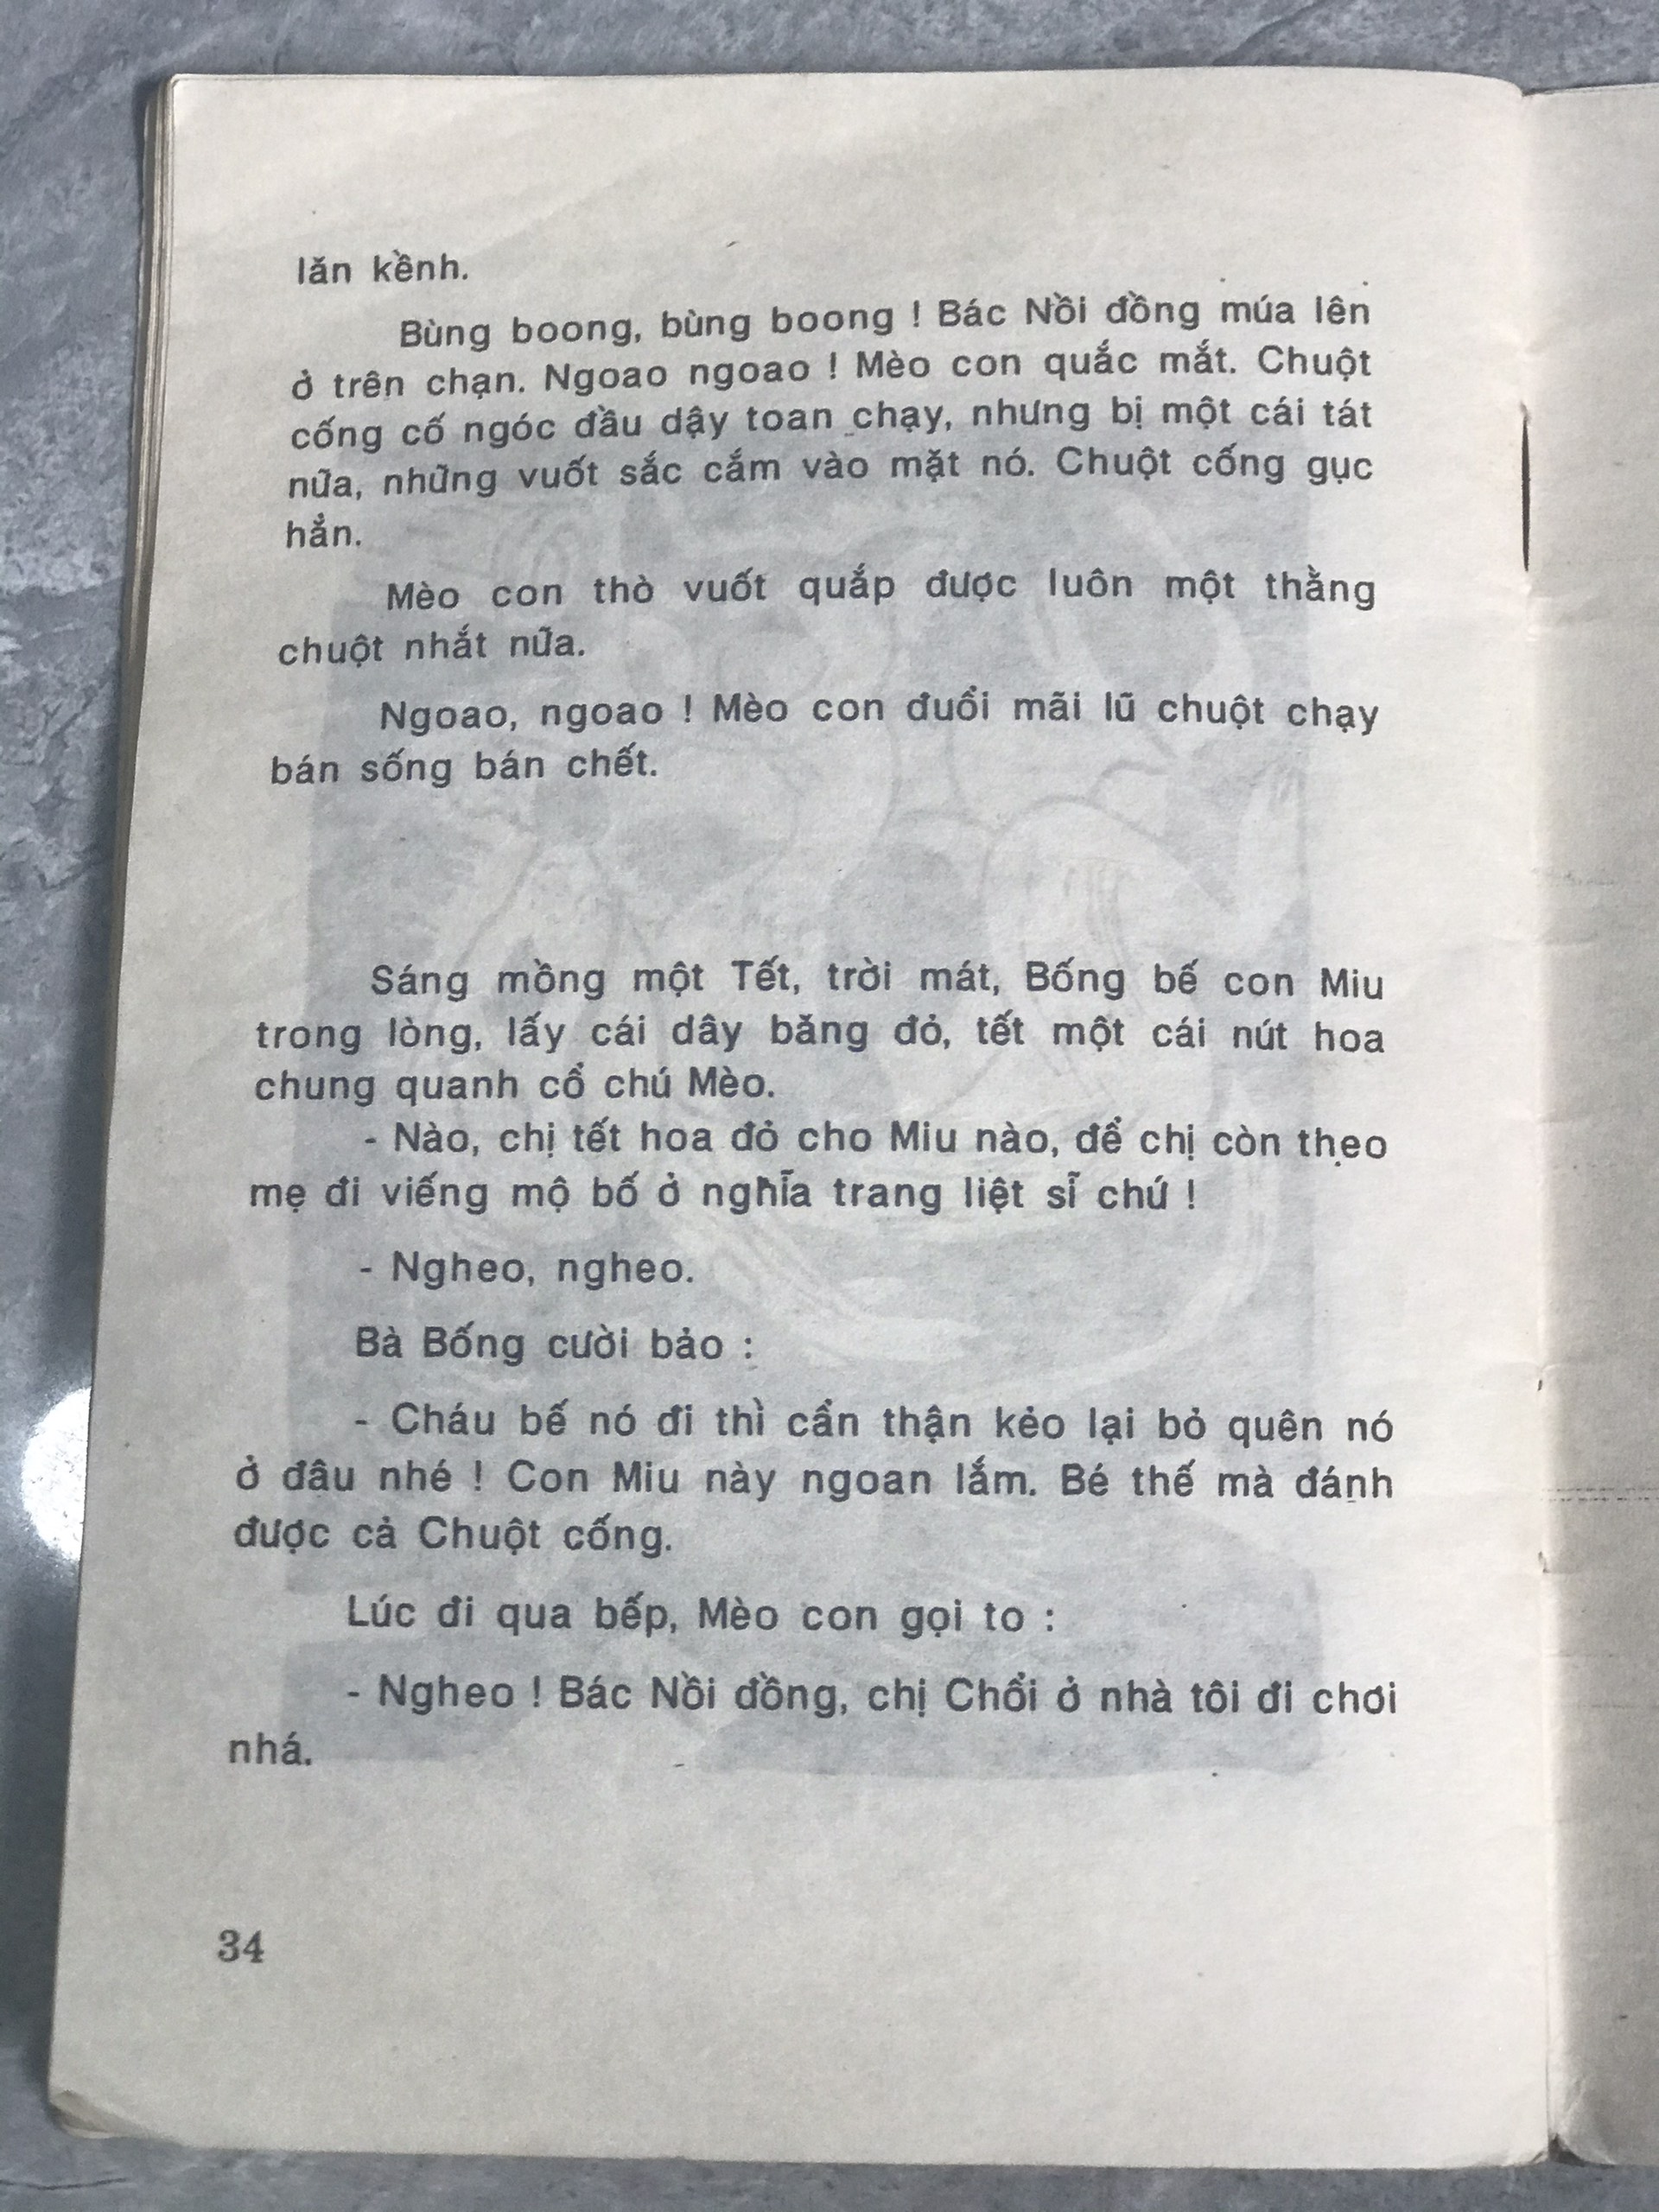 lăn kềnh.
Bùng boong, bùng boong ! Bác Nồi đồng múa lên
ở trên chạn. Ngoao ngoao ! Mèo con quắc mắt. Chuột
cống cố ngóc đầu dậy toan chạy, nhưng bị một cái tát
nữa, những vuốt sắc cắm vào mặt nó. Chuột cống gục
hẳn.
Mèo con thò vuốt quắp được luôn một thằng
chuột nhắt nữa.
Ngoao, ngoao ! Mèo con đuổi mãi lũ chuột chạy
bán sống bán chết.
Sáng mồng một Tết, trời mát, Bống bế con Miu
trong lòng, lấy cái dây băng đỏ, tết một cái nút hoa
chung quanh cổ chú Mèo.
- Nào, chị tết hoa đỏ cho Miu nào, để chị còn theo
mẹ đi viếng mộ bố ở nghĩa trang liệt sĩ chứ !
- Ngheo, ngheo.
Bà Bống cười bảo :
- Cháu bế nó đi thì cẩn thận kẻo lại bỏ quên nó
ở đâu nhé ! Con Miu này ngoan lắm. Bé thế mà đánh
được cả Chuột cống.
Lúc đi qua bếp, Mèo con gọi to :
- Ngheo ! Bác Nồi đồng, chị Chổi ở nhà tôi đi chơi
nhá.
34